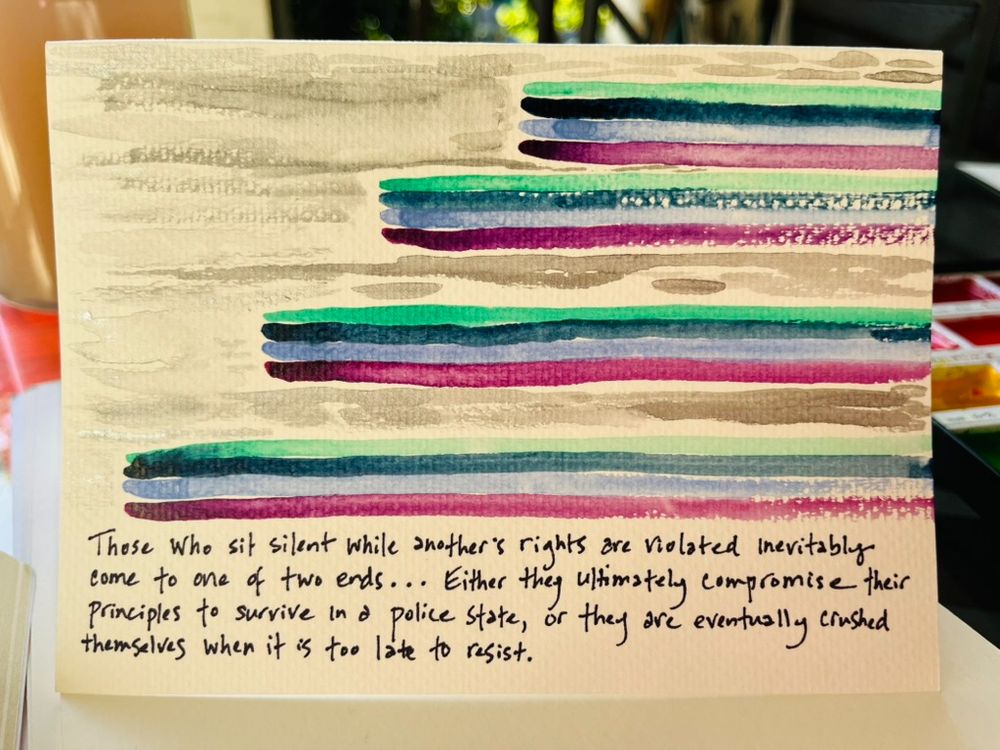 Those who sit silent while another's rights are violated inevitably
come to one of two ends... Either they ultimately compromise their
principles to survive in a police state, or they are eventually crushed
themselves when it is too late to resist.